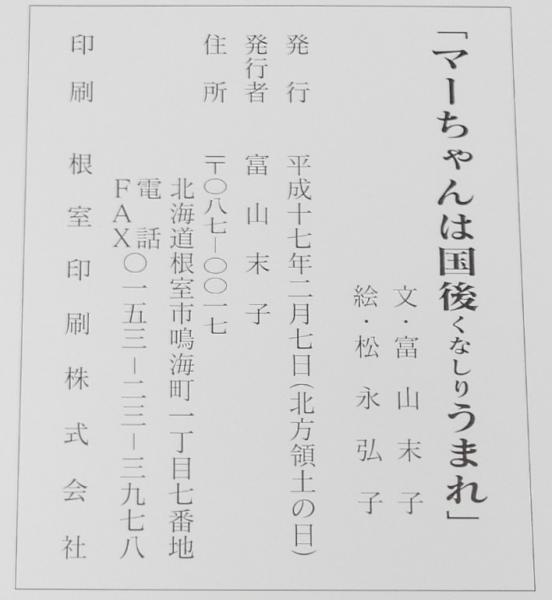 「マーちゃんは国後くなしりうまれ」
文・富山末子
絵・松永弘子
発行 平成十七年二月七日(北方領土の日)
発行者 富山末子
住所 〒〇八七-〇〇一七
北海道根室市鳴海町一丁目七番地
電話
FAX〇一五三-二三-三九七八
印刷 根室印刷株式会社